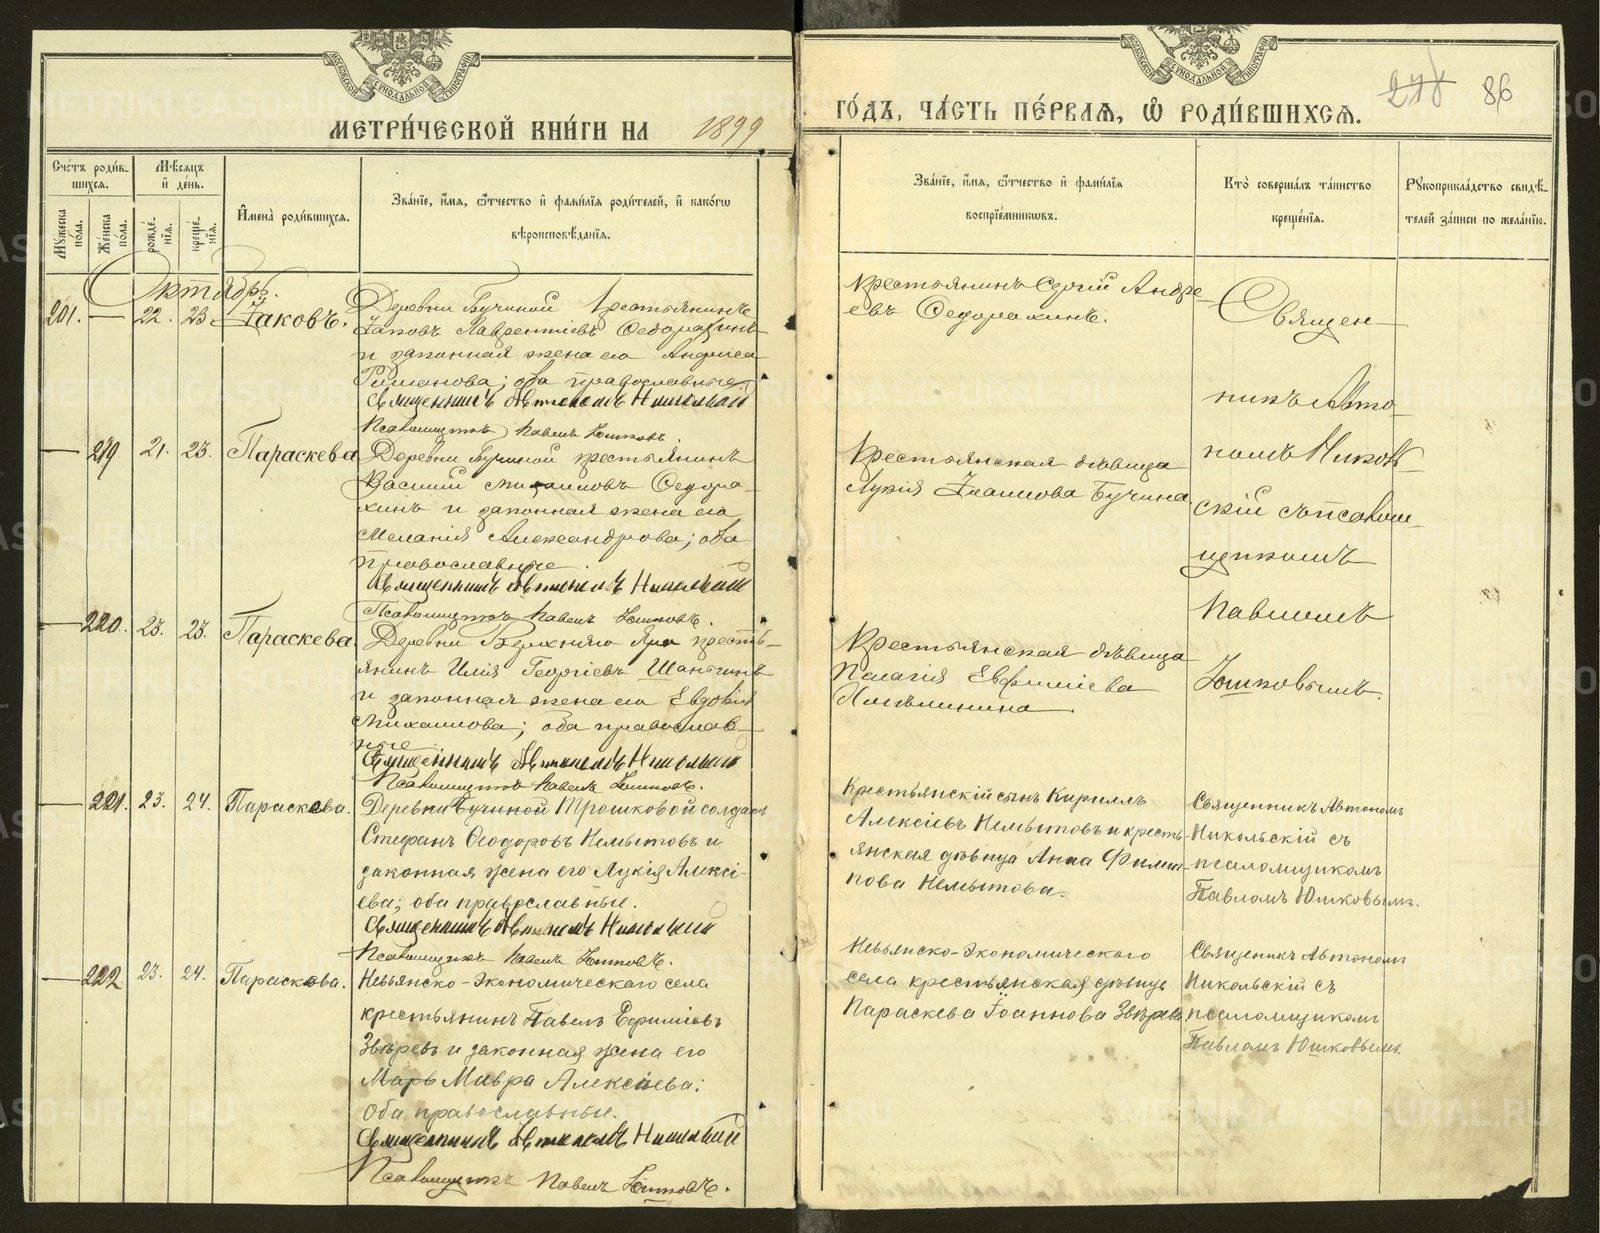 МЕТРИ́ЧЕСКОЙ КНИ́ГИ НА 1899
ГО́ДЪ, ЧА́СТЬ ПЕ́РВАѦ, Ѿ РОДИ́ВШИХСѦ.
86
Сче́тъ роди́в-
шихсѧ.
Мѣ́сѧцъ
и де́нь.
Мꙋ́жеска
по́ла.
Же́нска
по́ла.
рожде́-
нїѧ.
креще́-
нїѧ.
И҆мена̀ роди́вшихсѧ.
Зва́нїе, и҆́мѧ, ѻ҆́тчество и҆ фами́лїѧ роди́телей, и҆ како́гѡ
вѣроисповѣ́данїѧ.
Зва́нїе, и҆́мѧ, ѻ҆́тчество и҆ фами́лїѧ
воспрїе́мникѡвъ.
Кто̀ соверша́лъ та́инство
креще́нїѧ.
Рꙋкоприкла́дство свидѣ́-
телей за́писи по жела́нїю.
Октябрь.
201. — 22. 23. Іаковъ.
Деревни Бучиной крестьянинъ
Іаковъ Лаврентіевъ Ѳедорахинъ
и законная жена его
; оба православные.
Священникъ Автономъ Никольскій
Псаломщикъ Павелъ Юшковъ.
Крестьянинъ Сергій Андре-
евъ Ѳедорахинъ.
Священ-
никъ Авто-
номъ Николь-
скій съ псалом-
щикомъ
Павломъ
Юшковымъ.
— 219 21. 23. Параскева
Деревни Бучиной крестьянинъ
Василій Михаиловъ Ѳедора-
хинъ и законная жена его
Меланія Александрова; оба
православные.
Священникъ Автономъ Никольскій
Псаломщикъ Павелъ Юшковъ.
Крестьянская дѣвица
Лукія Бучина
— 220. 23. 23. Параскева.
Деревни Верхняго Яра кресть-
янинъ Илія Георгіевъ
и законная жена его Евдокія
Михаилова; оба православ-
ные
Священникъ Автономъ Никольскій
Псаломщикъ Павелъ Юшковъ.
Крестьянская дѣвица
Пелагія Евфиміева
— 221. 23. 24. Параскева.
Деревни Бучиной Трошковой солдатъ
Стефанъ Ѳеодоровъ Немытовъ и
законная жена его Лукія Алексі-
ева; оба православные.
Священникъ Автономъ Никольскій
Псаломщикъ Павелъ Юшковъ.
Крестьянскій сынъ Кириллъ
Алексіевъ Немытовъ и кресть-
янская дѣвица Анна Филип-
пова Немытова.
Священникъ Автономъ
Никольскій съ
псаломщикомъ
Павломъ Юшковымъ.
— 222 23. 24. Параскева.
Невьянско-Экономическаго села
крестьянинъ Павелъ Ефиміевъ
Звѣревъ и законная жена его
Марь Мавра Алексіева;
Оба православные.
Священникъ Автономъ Никольскій
Псаломщикъ Павелъ Юшковъ.
Невьянско-Экономическаго
села крестьянская дѣвица
Параскева Іоаннова Звѣрева.
Священникъ Автономъ
Никольскій съ
псаломщикомъ
Павломъ Юшковымъ.